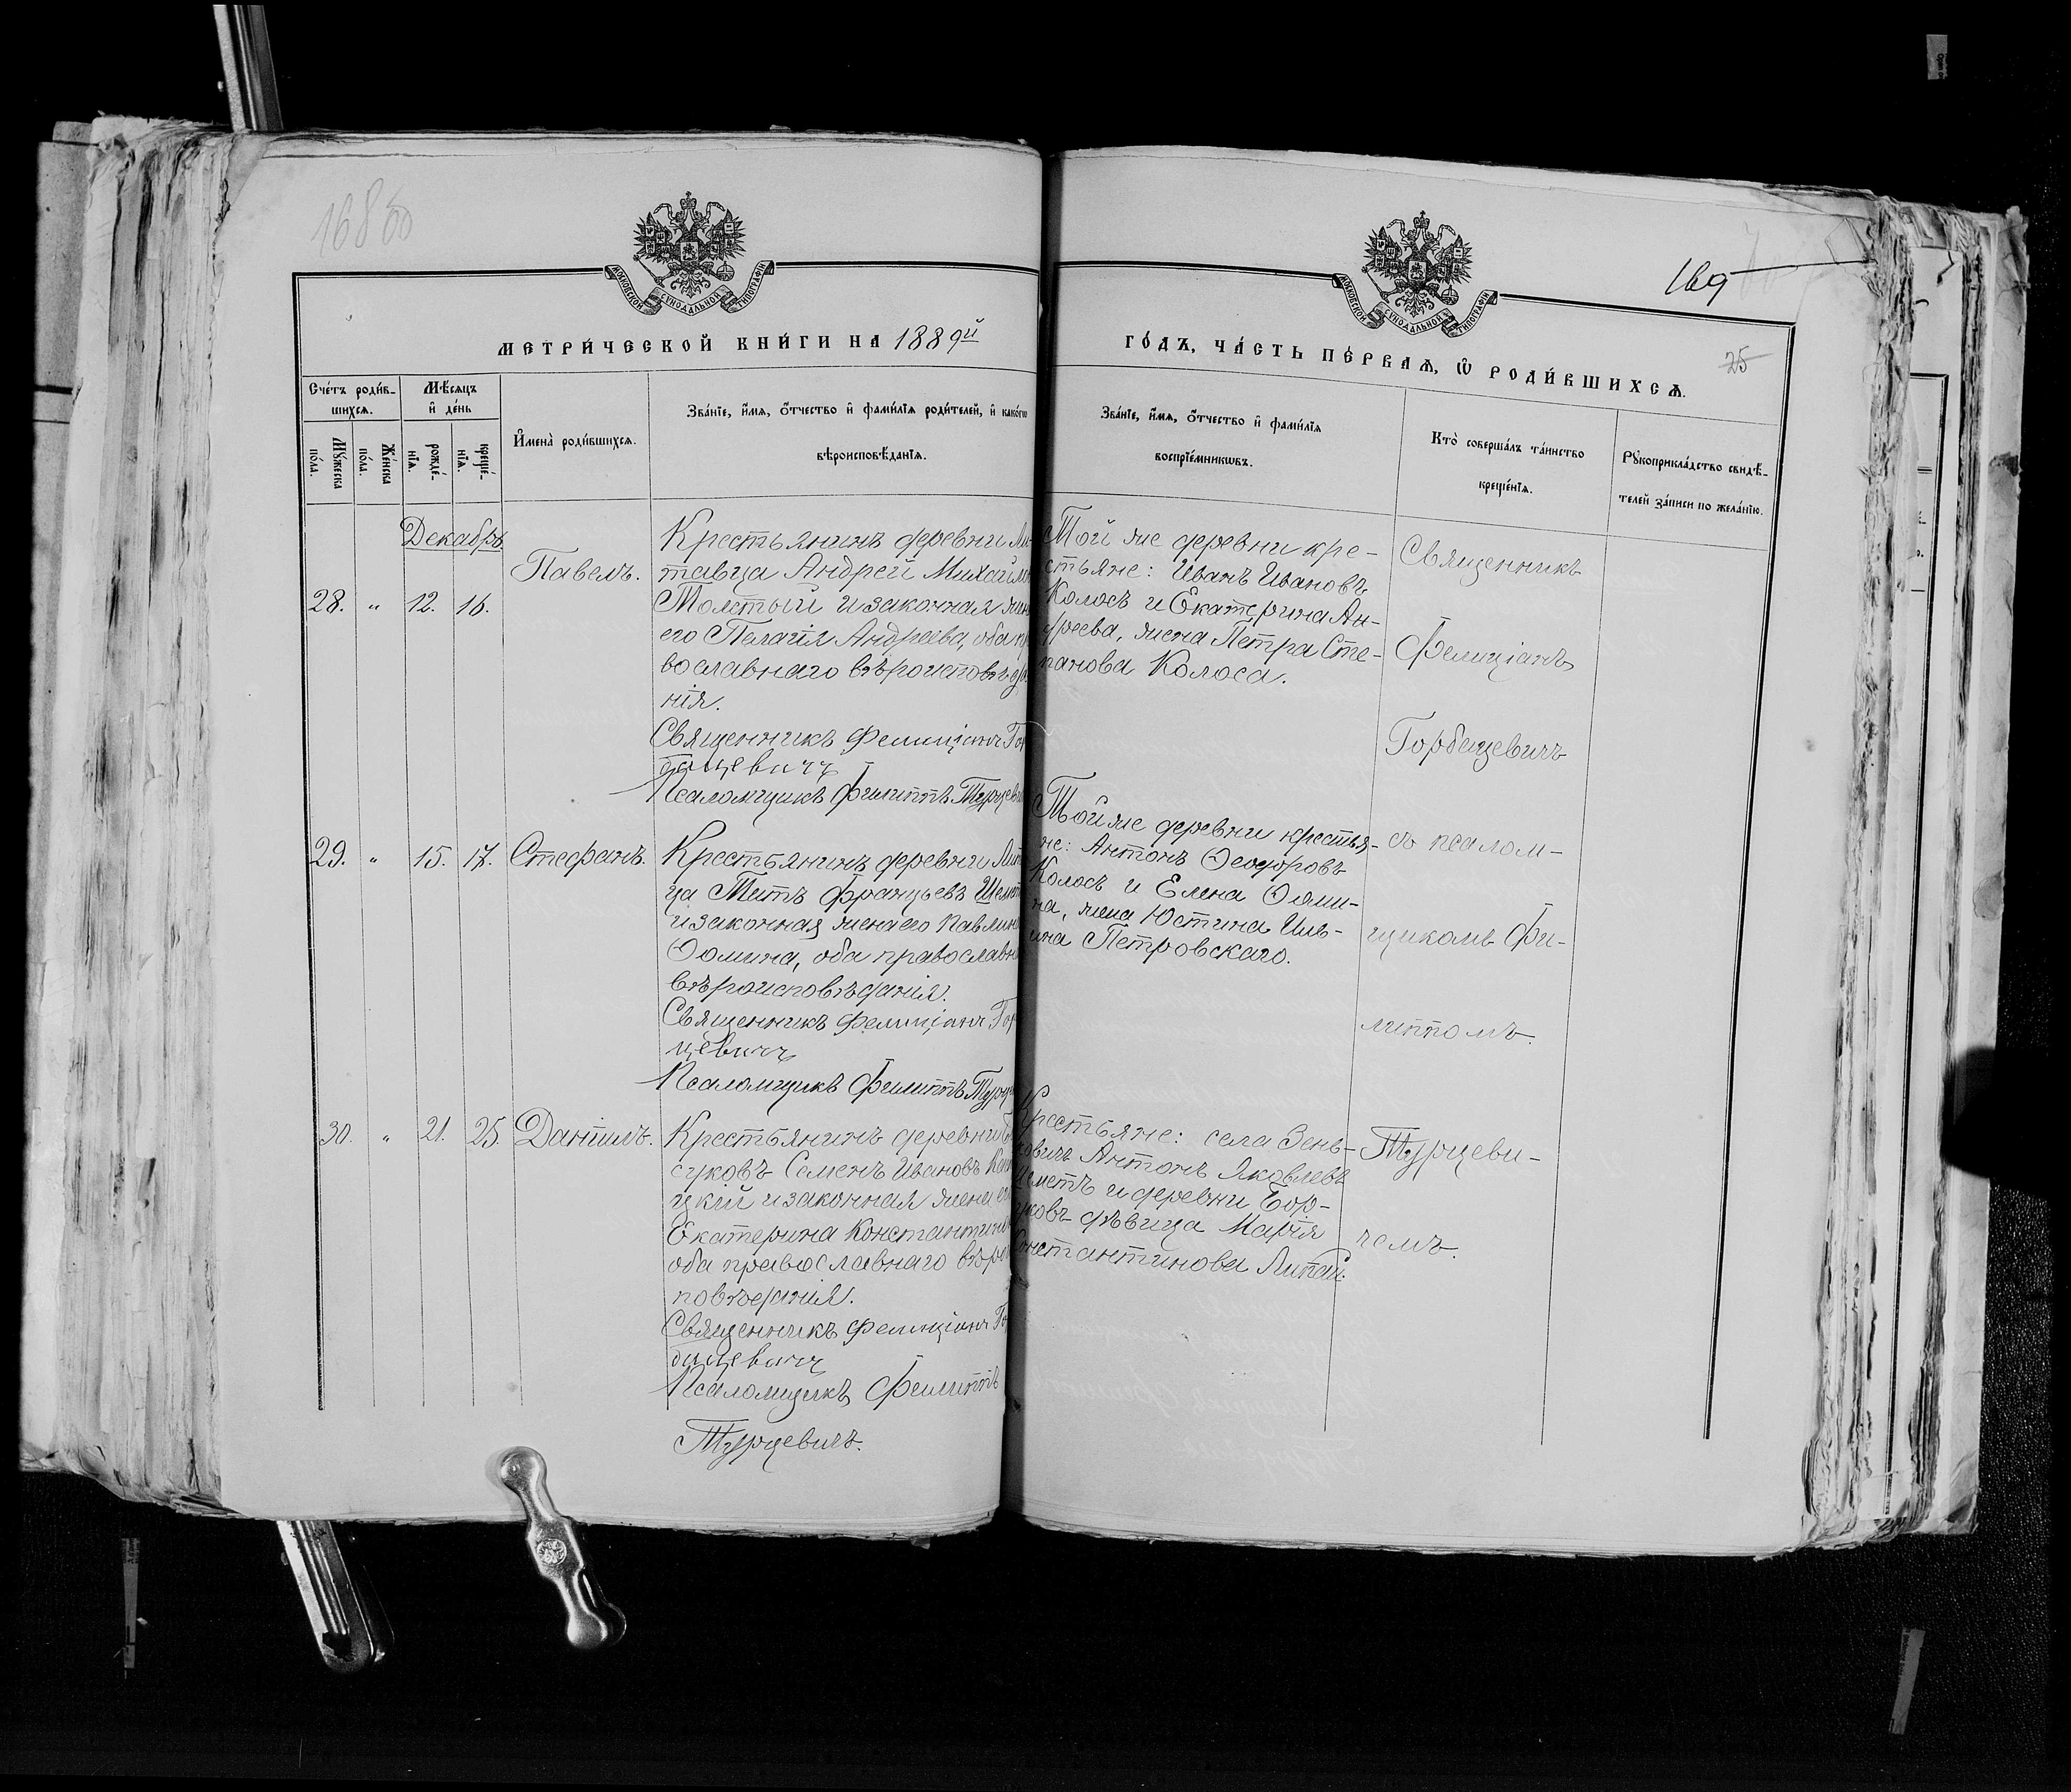 168 об
МОСКОВСКОЙ СѴНОДАЛЬНОЙ ТИПОГРАФІИ
МЕТРИ́ЧЕСКОЙ КНИ́ГИ НА 1889й
Сче́тъ роди́в-
шихся.
Мѣ́сяцъ
и҆ де́нь
Мꙋ́жеска
по́ла.
Же́нска
по́ла.
рожде́-
нїѧ.
креще́-
нїѧ.
И҆мена̀ роди́вшихсѧ.
Зва́нїе, и҆́мѧ, ѻ҆́тчество и҆ фами́лїѧ роди́телей, и҆ како́гѡ
вѣроисповѣ́данїѧ.
Декабрь
28. " 12. 16.
Павелъ.
Крестьянинъ деревни Ли-
тавца Андрей Михайлов
Толстый и законная жена
его Пелагія Андреева, оба пра
вославнаго вѣроисповѣда
нія.
Священникъ Фелиціанъ Гор
бацевичъ
Псаломщикъ Филиппъ Турцеви
29. " 15. 17. Стефанъ.
Крестьянинъ деревни Лит
ца Титъ Францьевъ Шемет
и законная жена его Павлин
Ѳомина, оба православн
вѣроисповѣданія.
Священникъ Фелиціанъ Гор
цевичъ
Псаломщикъ Филиппъ Турц
30. " 21. 25. Даніилъ.
Крестьянинъ деревни Б
суковъ Семенъ Ивановъ
цкій и законная жена его
Екатерина Константинов
оба православнаго вѣрои
повѣданія.
Священникъ Фелиціанъ Го
бацевичъ
Псаломщикъ Филиппъ
Турцевичъ.
169
МОСКОВСКОЙ СѴНОДАЛЬНОЙ ТИПОГРАФІИ
ГО́ДЪ, ЧА́СТЬ ПЕ́РВАѦ, Ѡ҆ РОДИ́ВШИХСѦ.
25
Зва́нїе, и҆́мѧ, ѻ҆́тчество и҆ фами́лїѧ
воспрїе́мникѡвъ.
Кто̀ соверша́лъ та́инство
креще́нїѧ.
Рꙋкоприкла́дство свидѣ́-
телей за́писи по жела́нїю.
Той же деревни кре-
стьяне: Иванъ Ивановъ
Колосъ и Екатерина Ан-
дреева, жена Петра Сте-
панова Колоса.
Той же деревни крестья-
не: Антонъ Ѳеодоровъ
Колосъ и Елена Ѳоми-
на, жена Юстина Иль-
ина Петровскаго.
Крестьяне: села Зень-
ковичъ Антонъ Яковлевъ
Шеметъ и деревни Бор-
суковъ дѣвица Марія
Константинова Липай.
Священникъ
Фелиціанъ
Горбацевичъ
съ псалом-
щикомъ Фи-
липпомъ
Турцеви-
чемъ.